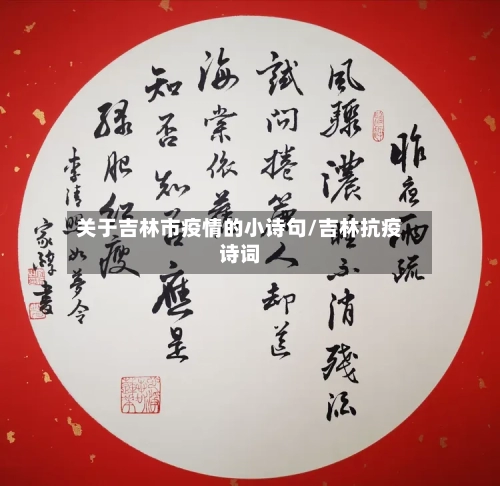 昨夜雨疏
风骤濃睡不消残酒
試问捲簾人却道
海棠依舊
知否知否應是
绿肥红瘦
李清照如梦令
关于吉林市疫情的小诗句/吉林抗疫
诗词